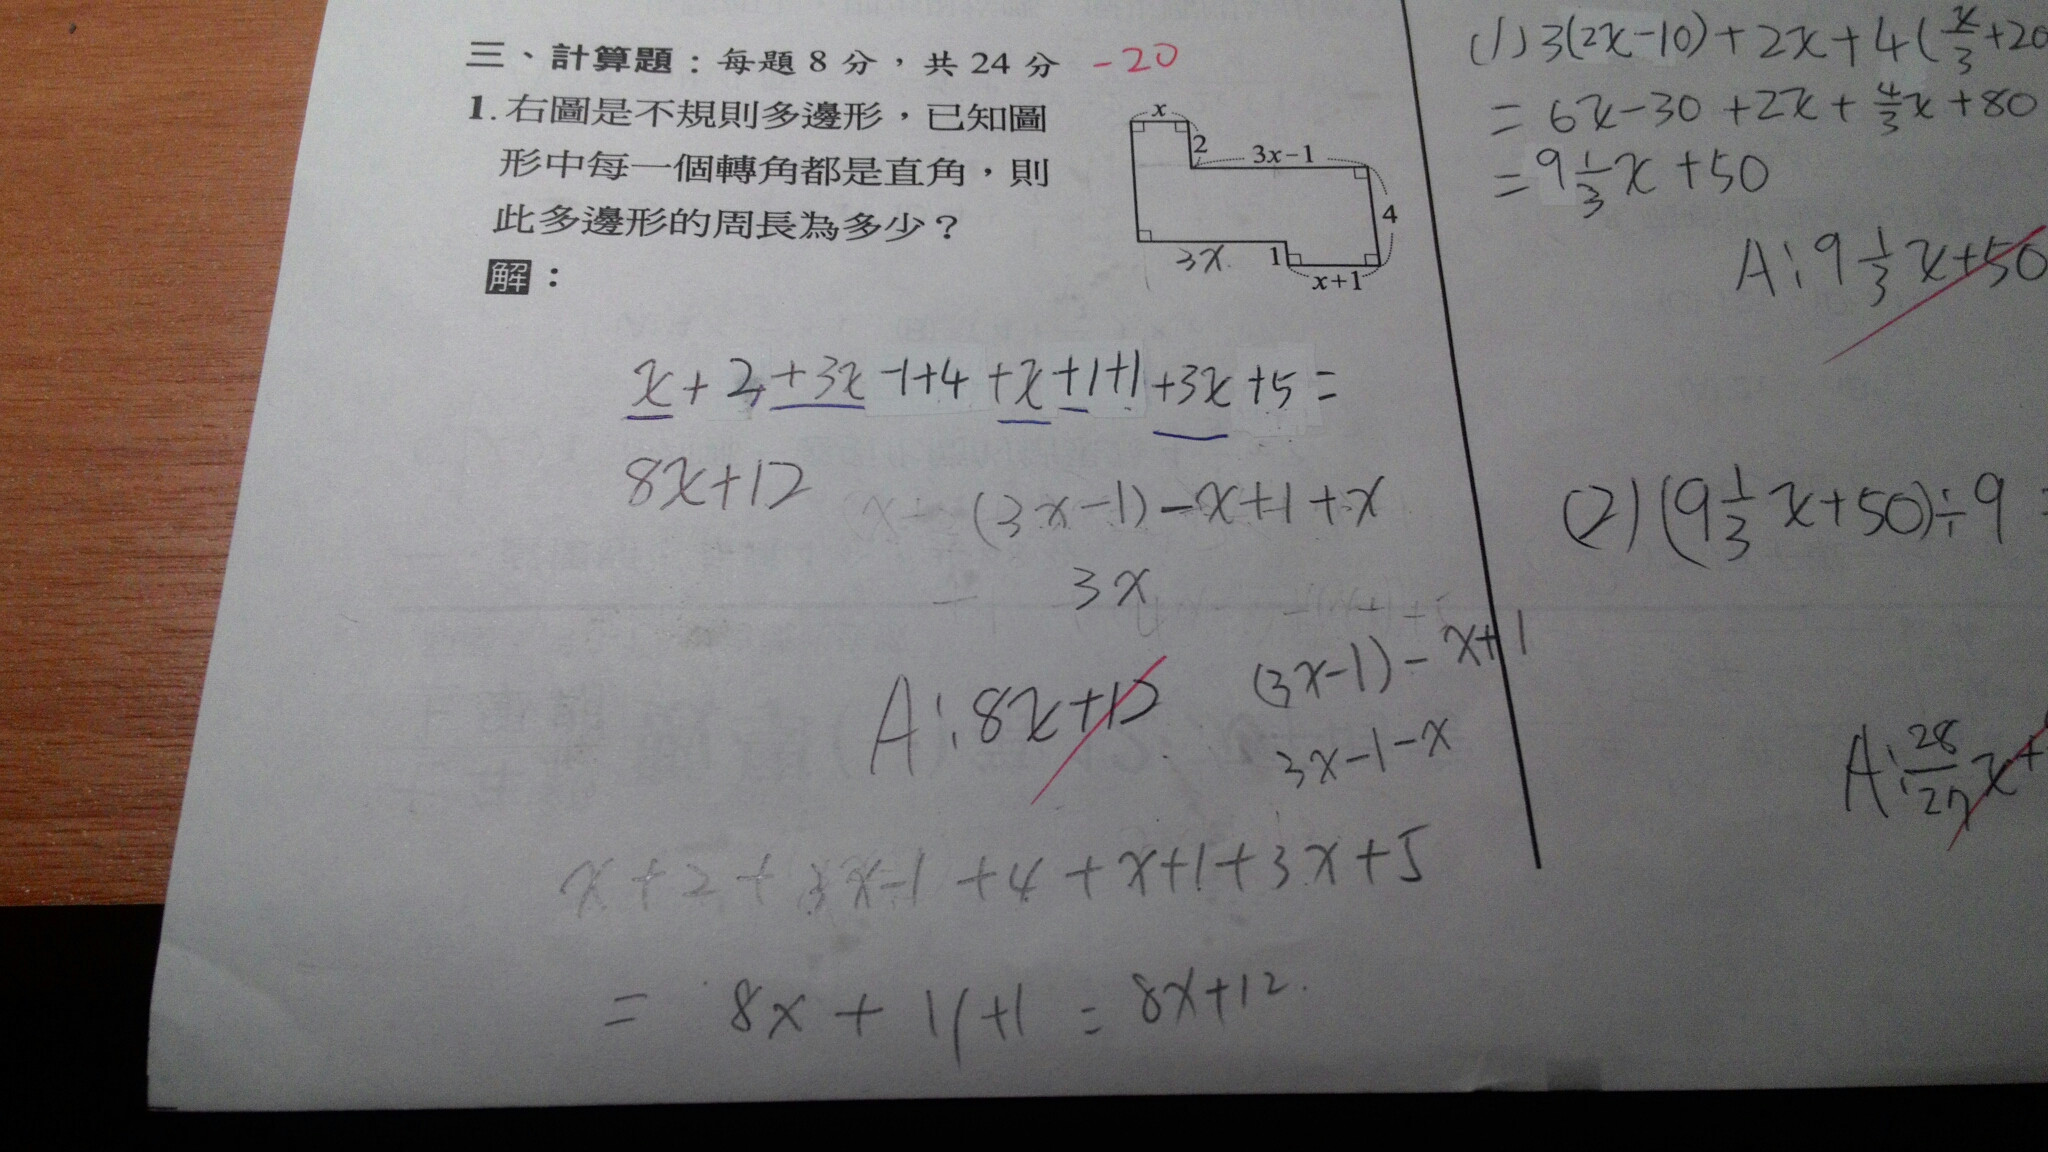 三、計算題：每題8分，共24分 -20
1. 右圖是不規則多邊形，已知圖
形中每一個轉角都是直角，則
此多邊形的周長為多少？
解：
x
2
3x-1
4
3x
1
x+1
x+2+3x-1+4+x+1+1+3x+5=
8x+12
(3x-1)-x+1+x
3x
(3x-1)-x+1
3x-1-x
A:8x+12
x+2+3x-1+4+x+1+3x+5
= 8x+11+1=8x+12.
(1) 3(2x-10)+2x+4(x/3+20
=6x-30+2x+4/3x+80
=9 1/3x+50
A:9 1/3x+50
(2)(9 1/3x+50)÷9
A:28/27x+